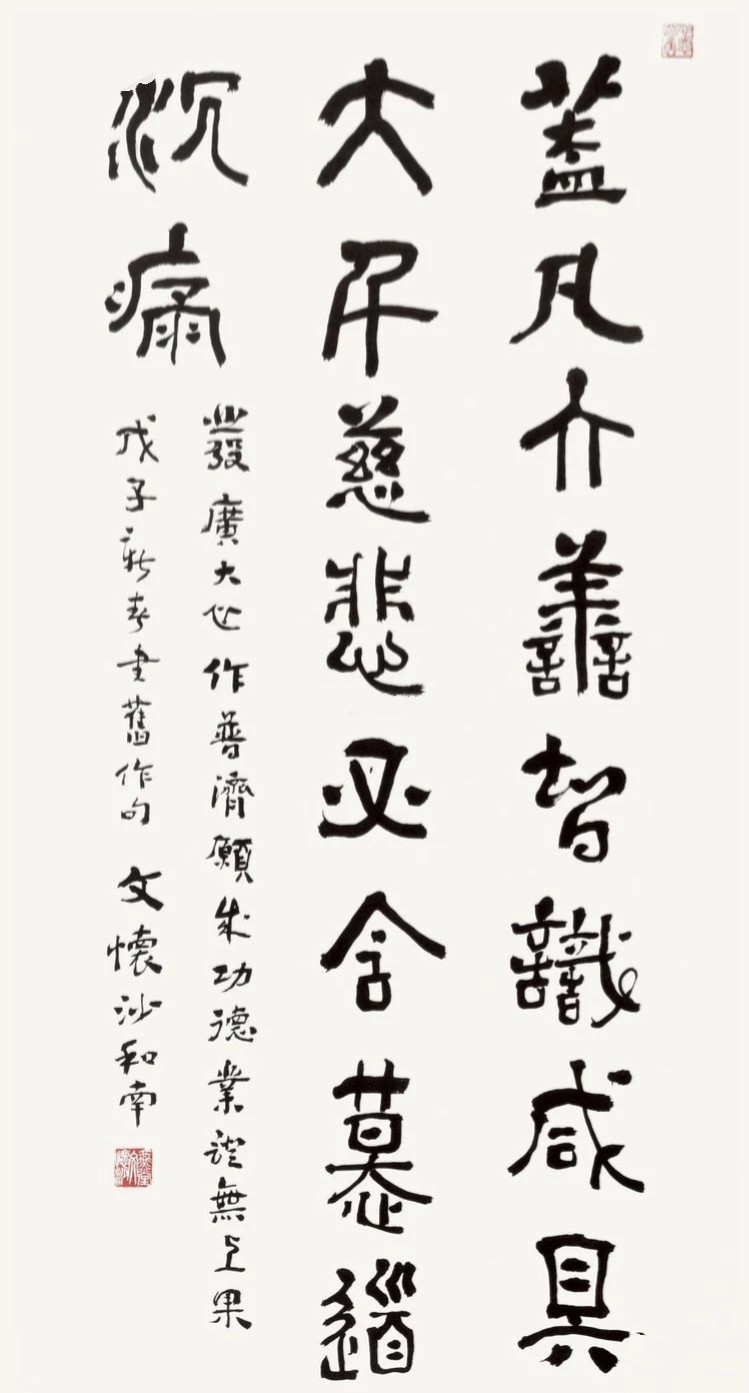 蓋凡大善智識咸具
大慈悲必含慕道
沉痛
發廣大心作普濟願成功德業證無上果
戊子新春書舊作句 文懷沙和南